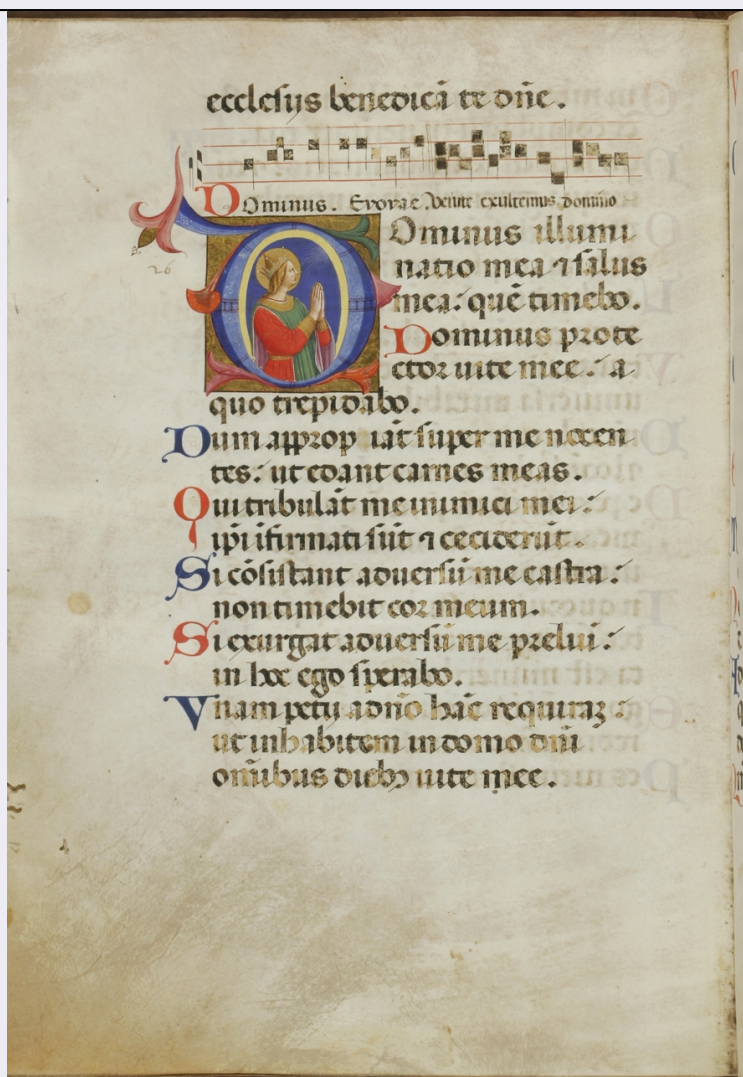 ecclesijs benedicā te dñe.
Dominus. Evovae Venite exultemus domino
Ominus illumi
natio mea ⁊ salus
mea: quē timebo.
Dominus prote
ctor uite mee: a
quo trepidabo.
Dum approp iāt super me nocen
tes: ut edant carnes meas.
Qui tribulāt me inimici mei:
ipi ĩfirmati sūt ⁊ ceciderūt.
Si cōsistant aduersū me castra:
non timebit cor meum.
Si exurgat aduersū me preliũ:
in hoc ego sperabo.
Vnam petij a dño hāc requirā:
ut inhabitem in domo dñi
omībus dieb⁊ uite mee.
26